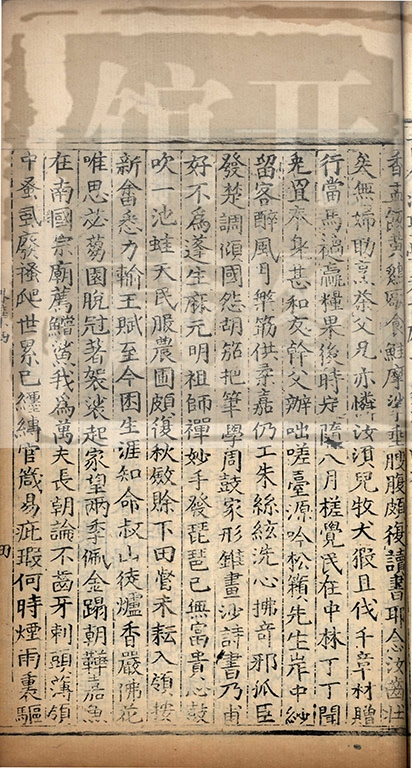 香盂飯黃雞厭食鮭摩挲垂腴腹頗復讀書耶念汝齒壯
矣無婦助烹茶父兄亦憐汝須兒牧犬豭且伐千章材贈
行當馬檛贏糧果後時定隨八月槎覺民在中林丁丁聞
兔罝不身甚和友幹父辦咄嗟臺源吟松籟先生岸巾紗
留客醉風月樂筋供柔嘉仍工朱絲絃洗心拂奇邪派臣
發楚調傾國怨胡笳把筆學周鼓家形錐畫沙詩書乃甫
好不為蓬生麻元明祖師禪妙手發琵琶已無富貴心鼓
吹一池蛙天民服農圃頗復秋斂賒下田督未耘入領按
新畬悉力輸王賦至今困生涯知命叔山徒爐香嚴佛花
唯思苾蒭園脫冠著袈裟起家望兩季佩金蹋朝鞾嘉魚
在南國宗廟薦鱨鯊我為萬夫長朝論不齒牙刺頭簿領
中蚤虱廢搔爬世累已纏縛官箴易疵瑕何時煙雨裏驅